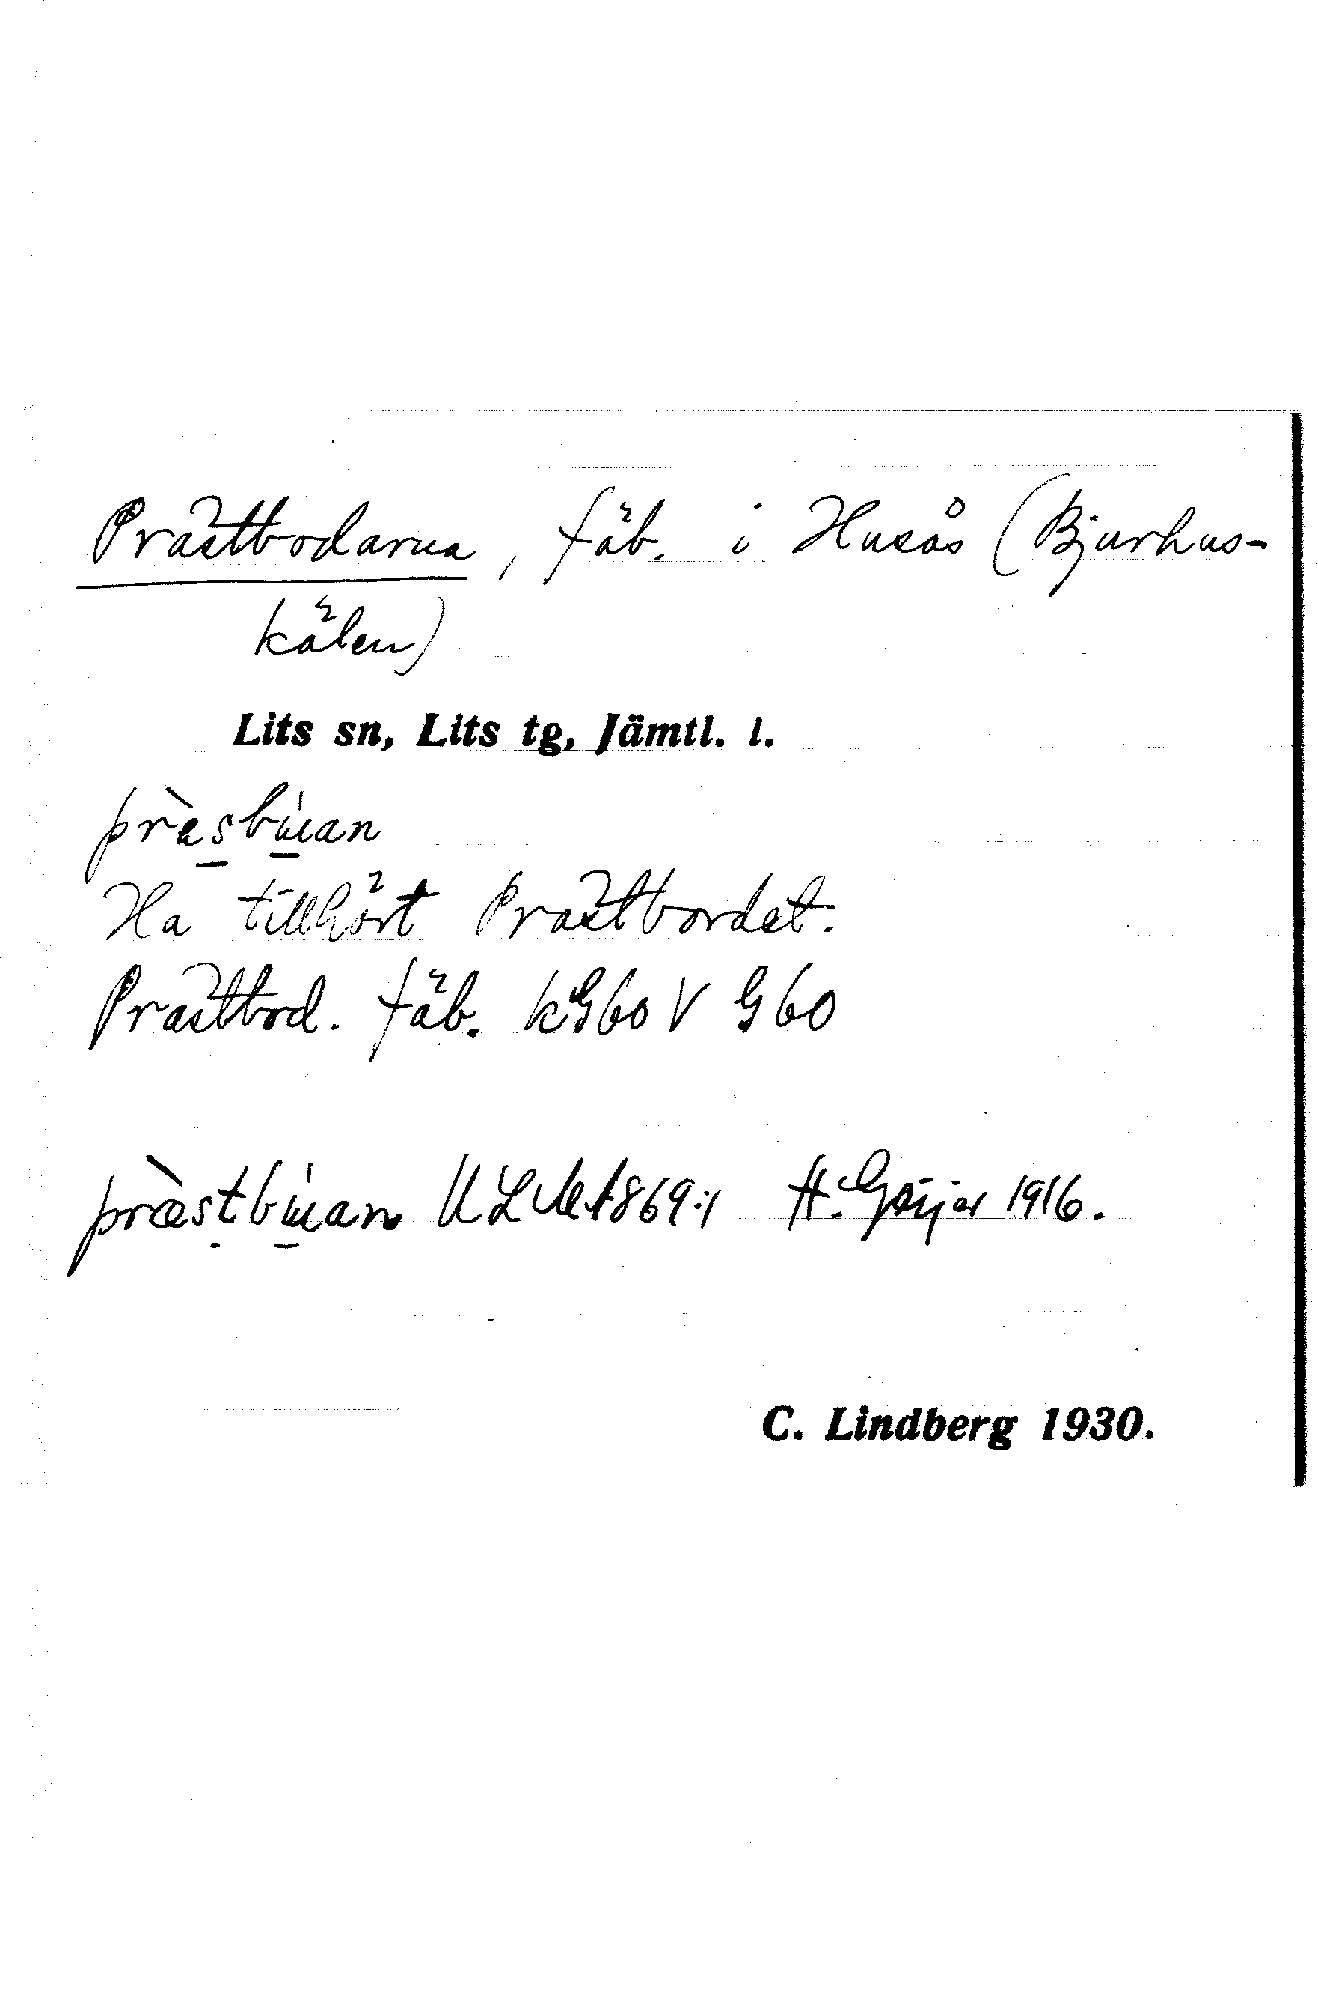 Prästbodarna, fäb. i Husås (Bjurhus-
kälen)
Lits sn, Lits tg, Jämtl. l.
præ̀sbu̇̀an
Ha tillhört Prästbordet.
Prästbod. fäb. kG60 V G60
præ̀stbu̇̀an ULMA 869:1 H. Geijer 1916.
C. Lindberg 1930.